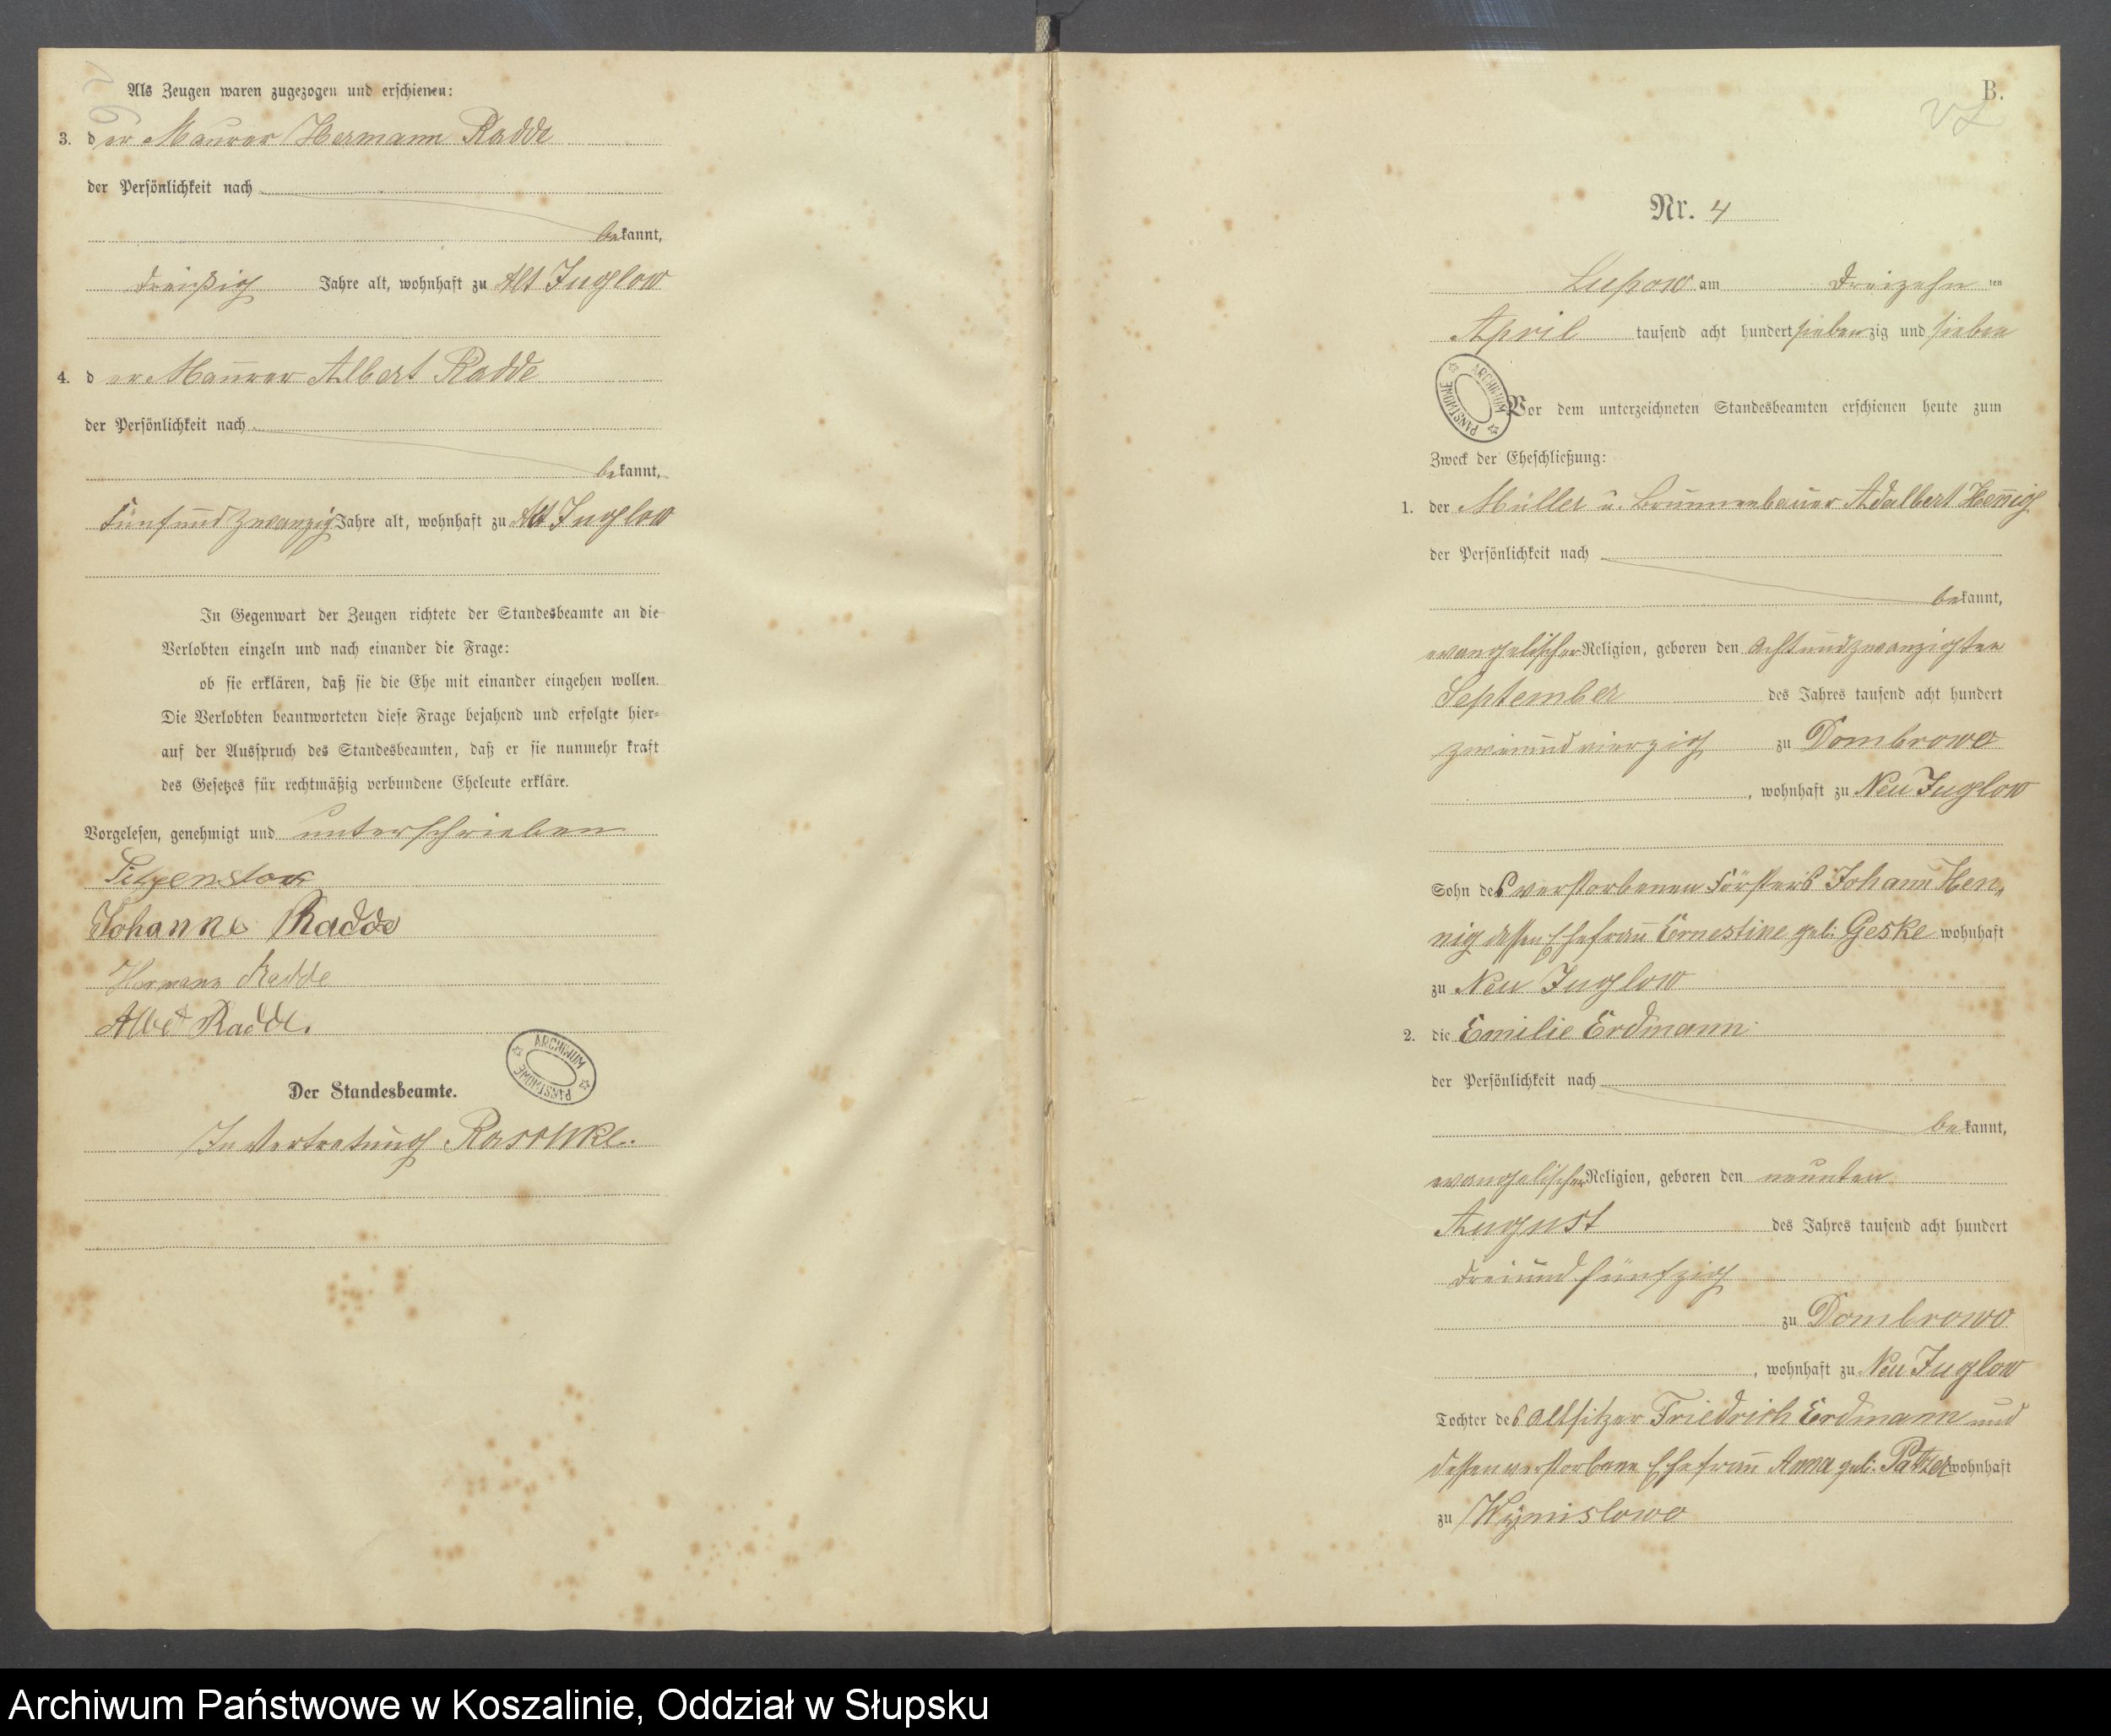 Als Zeugen waren zugezogen und erschienen:
3. der Maurer Hermann Radde
der Persönlichkeit nach
bekannt,
dreißig Jahre alt, wohnhaft zu Alt Juglow
4. der Maurer Albert Radde
der Persönlichkeit nach
bekannt,
fünf und zwanzig Jahre alt, wohnhaft zu Alt Juglow
In Gegenwart der Zeugen richtete der Standesbeamte an die
Verlobten einzeln und nach einander die Frage:
ob sie erklären, daß sie die Ehe mit einander eingehen wollen.
Die Verlobten beantworteten diese Frage bejahend und erfolgte hier-
auf der Ausspruch des Standesbeamten, daß er sie nunmehr kraft
des Gesetzes für rechtmäßig verbundene Eheleute erkläre.
Vorgelesen, genehmigt und unterschrieben
Johanne Radde
Hermann Radde
Albert Radde.
ARCHIWUM PAŃSTWOWE
Der Standesbeamte.
In Vertretung Raschke.
B.
Nr. 4
Lupow am dreizehn ten
April tausend acht hundert siebenzig und sieben
ARCHIWUM PAŃSTWOWE
Vor dem unterzeichneten Standesbeamten erschienen heute zum
Zweck der Eheschließung:
1. der Müller u. Brunnenbauer Adalbert Hennig
der Persönlichkeit nach
bekannt,
evangelischer Religion, geboren den achtundzwanzigsten
September des Jahres tausend acht hundert
zweiundvierzig zu Dombrowo
, wohnhaft zu Neu Juglow
Sohn des verstorbenen Försters Johann Hen-
nig dessen Ehefrau Ernestine geb: Geske wohnhaft
zu Neu Juglow
2. die Emilie Erdmann
der Persönlichkeit nach
bekannt,
evangelischer Religion, geboren den neunten
August des Jahres tausend acht hundert
dreiundfünfzig
zu Dombrowo
, wohnhaft zu Neu Juglow
Tochter des Altsitzer Friedrich Erdmann und
dessen verstorbene Ehefrau Anna geb: Patzer wohnhaft
zu Wymislowo
Archiwum Państwowe w Koszalinie, Oddział w Słupsku